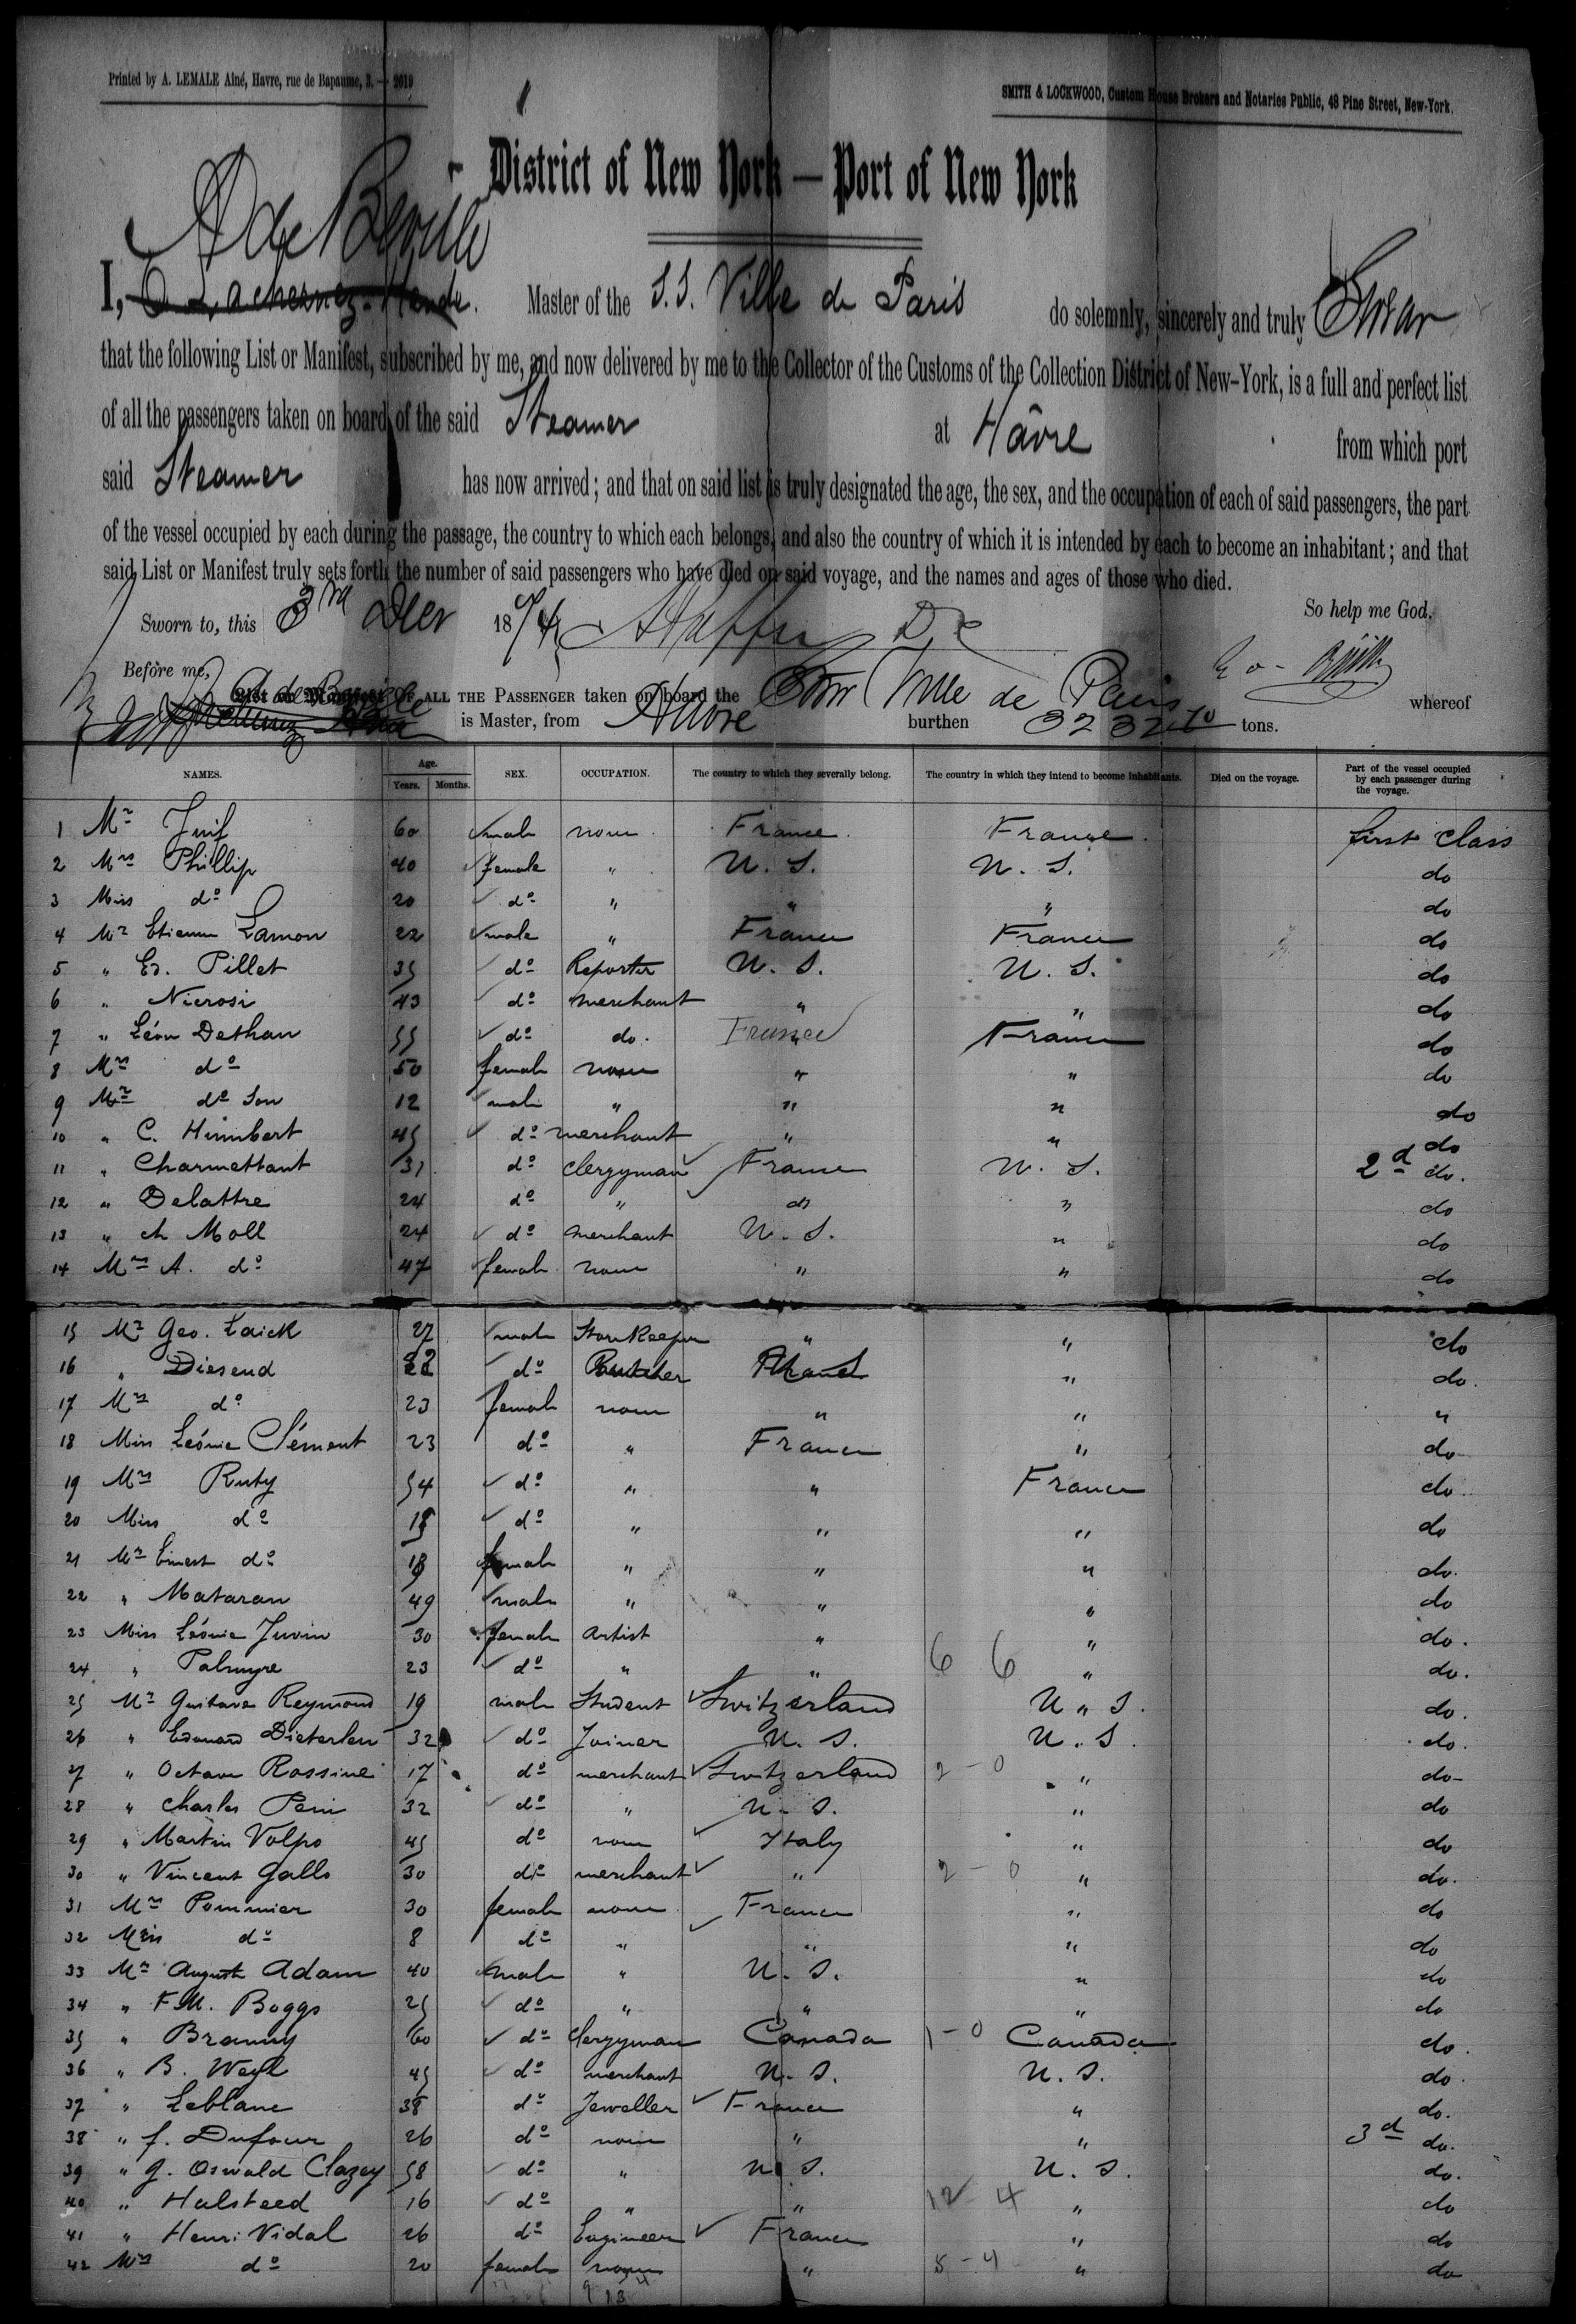 Printed by A. LEMALE Aîné, Havre, rue de Bapaume, 3. — 2619
SMITH & LOCKWOOD, Custom House Brokers and Notaries Public, 48 Pine Street, New-York.
District of New York — Port of New York
A de Beville
I, Master of the S.S. Ville de Paris do solemnly, sincerely and truly Swear
that the following List or Manifest, subscribed by me, and now delivered by me to the Collector of the Customs of the Collection District of New-York, is a full and perfect list
of all the passengers taken on board of the said Steamer at Hâvre from which port
said Steamer has now arrived; and that on said list is truly designated the age, the sex, and the occupation of each of said passengers, the part
of the vessel occupied by each during the passage, the country to which each belongs, and also the country of which it is intended by each to become an inhabitant; and that
said List or Manifest truly sets forth the number of said passengers who have died on said voyage, and the names and ages of those who died.
So help me God.
Sworn to, this 3rd Decr 1874
Before me,
List or Manifest OF ALL THE PASSENGER taken on board the Stmr Ville de Paris whereof
is Master, from Havre burthen 3232 tons.
NAMES. Age. Years. Months. SEX. OCCUPATION. The country to which they severally belong. The country in which they intend to become inhabitants. Died on the voyage. Part of the vessel occupied by each passenger during the voyage.
1 Mr Juif 60 male none France France first class
2 Mrs Phillip 40 female " U. S. U. S. do
3 Miss do 20 do " " " do
4 Mr Etienne Lamon 22 male " France France do
5 " Ed. Pillet 35 do Reporter U. S. U. S. do
6 " Nierosi 43 do merchant " " do
7 " Léon Dethan 55 do do France France do
8 Mrs do 50 female none " " do
9 Mr do Son 12 male " " " do
10 " C. Himbert 45 do merchant " " do
11 " Charmettant 31 do clergyman France U. S. 2d do.
12 " Delattre 24 do " do " do
13 " ch Moll 24 do merchant U. S. " do
14 Mrs A. do 47 female none " " do
15 Mr Geo. Laick 27 male Storekeeper " " do
16 " Diesend do Butcher " do.
17 Mrs do 23 female none " " "
18 Miss Léonie Clément 23 do " France " do
19 Mrs Ruty 54 do " " France do
20 Miss do do " " " do
21 Mr Ernest do female " " " do.
22 " Mataran 49 male " " " do
23 Miss Léonie Juvin 30 female artist " " do.
24 " Palmyre 23 do " " 6 6 " do.
25 Mr Gustave Reymond 19 male Student Switzerland U " S. do.
26 " Edouard Dieterlen 32 do Joiner U. S. U. S. do.
27 " Octave Rossine 17 do merchant Switzerland 2 - 0 " do
28 " Charles Perii 32 do " U. S. " do
29 " Martin Volpo 45 do none Italy " do
30 " Vincent Gallo 30 do merchant " 2 - 0 " do.
31 Mrs Pommier 30 female none France " do
32 Miss do 8 do " " " do
33 Mr August Adam 40 male " U. S. " do
34 " F.M. Boggs 25 do " " " do
35 " Branny 60 do clergyman Canada 1 - 0 Canada do.
36 " B. Weyl 45 do merchant U. S. U. S. do.
37 " Leblanc 38 do Jeweller France " do.
38 " f. Dufour 26 do none " " 3d do.
39 " G. Oswald Clazey 58 do " U. S. U. S. do.
40 " Halsteed 16 do " " 12 - 4 " do
41 " Henri Vidal 26 do Engineer France " do
42 Mrs do 20 female none " 8 - 4 " do